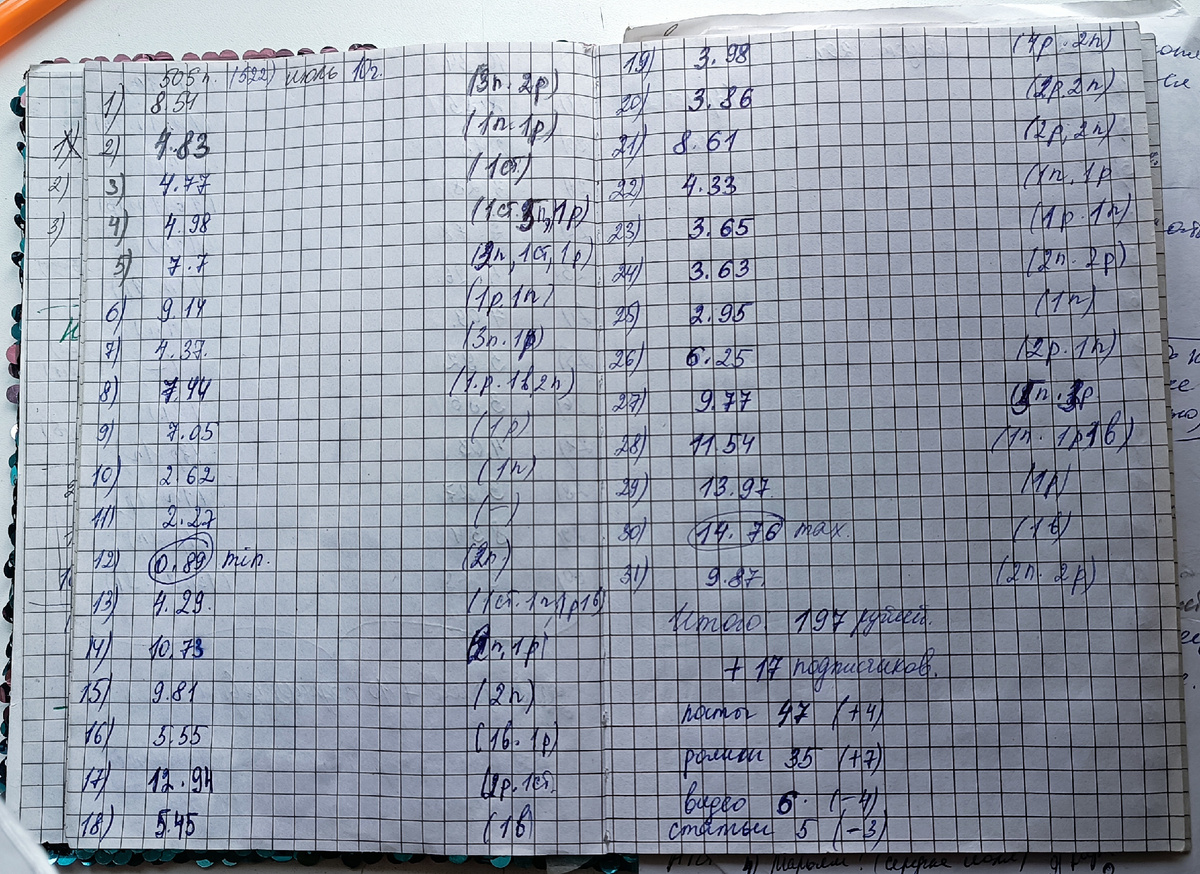 505п. (522) июль 10г.
1) 8.51 (3п. 2р)
2) 4.83 (1п. 1р)
3) 4.77 (1ст.)
4) 4.98 (1ст. 5п, 1р)
5) 7.7 (2п, 1ст, 1р)
6) 9.14 (1р, 1п)
7) 4.37. (3п. 1р)
8) 7.44 (1.р. 1в, 2п)
9) 7.05 (1р)
10) 2.62 (1п)
11) 2.27 (-)
12) 0.89 min. (2п)
13) 4.29. (1ст. 1п, 1р 1в)
14) 10.73 п, 1р)
15) 9.81 (2п)
16) 5.55 (1в. 1р)
17) 12.94 (2р. 1ст.
18) 5.45 (1в)
19) 3.98 (1р. 2п)
20) 3.86 (2р, 2п)
21) 8.61 (2р, 2п)
22) 4.33 (1п, 1р
23) 3.65 (1р. 1п)
24) 3.63 (2п. 2р)
25) 2.95 (1п)
26) 6.25 (2р. 1п)
27) 9.77
28) 11.54 (1п. 1р 1в)
29) 13.97 (1р)
30) 14.76 max. (1в)
31) 9.87. (2п. 2р)
Итого 197 рублей.
+ 17 подписчиков.
посты 47 (+4)
ролики 35 (+7)
видео 6. (-4)
статьи 5 (-3)
1)
2)
3)